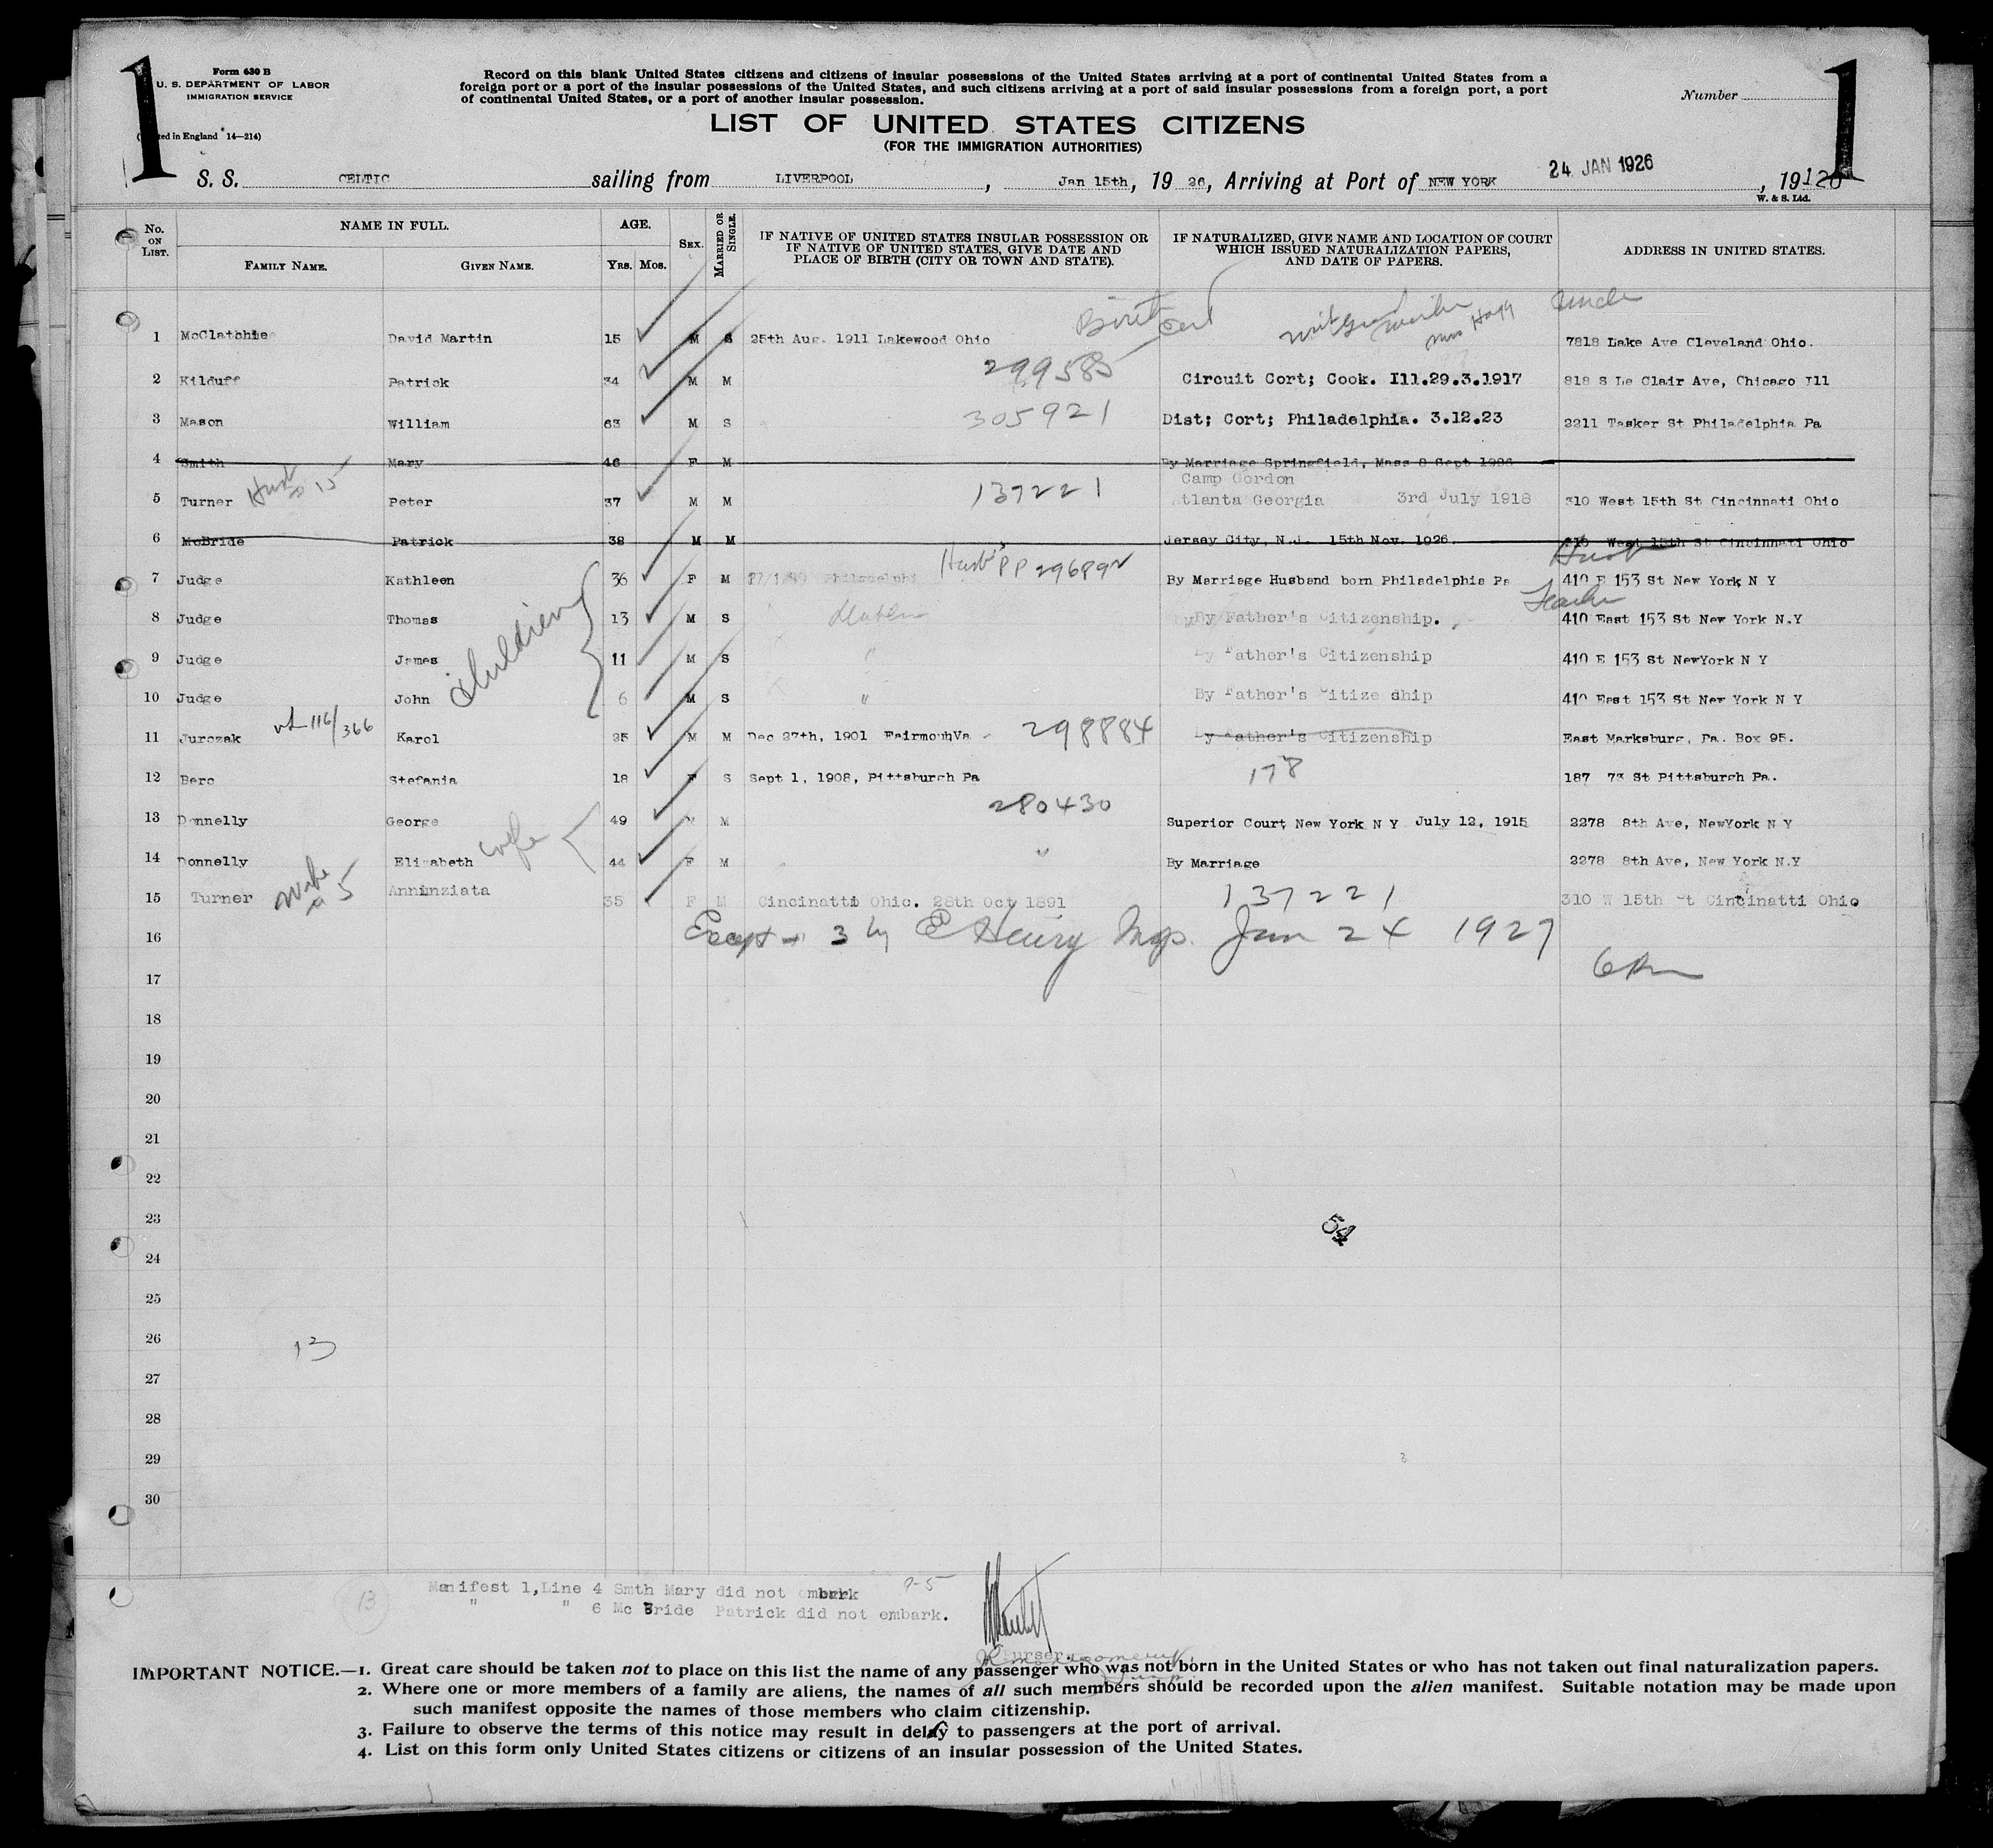 1
1
Form 630 B
U. S. DEPARTMENT OF LABOR
IMMIGRATION SERVICE
ted in England 14—214)
Record on this blank United States citizens and citizens of insular possessions of the United States arriving at a port of continental United States from a
foreign port or a port of the insular possessions of the United States, and such citizens arriving at a port of said insular possessions from a foreign port, a port
of continental United States, or a port of another insular possession.
Number
LIST OF UNITED STATES CITIZENS
(FOR THE IMMIGRATION AUTHORITIES)
S. S. CELTIC sailing from LIVERPOOL, Jan 15th, 19 26, Arriving at Port of NEW YORK 24 JAN 1926, 19
W. & S. Ltd.
No. ON LIST. NAME IN FULL. FAMILY NAME. GIVEN NAME. AGE. Yrs. Mos. SEX. MARRIED OR SINGLE. IF NATIVE OF UNITED STATES INSULAR POSSESSION OR IF NATIVE OF UNITED STATES, GIVE DATE AND PLACE OF BIRTH (CITY OR TOWN AND STATE). IF NATURALIZED, GIVE NAME AND LOCATION OF COURT WHICH ISSUED NATURALIZATION PAPERS, AND DATE OF PAPERS. ADDRESS IN UNITED STATES.
Birth Cert Uncle
1 McClatchie David Martin 15 M S 25th Aug. 1911 Lakewood Ohio 7818 Lake Ave Cleveland Ohio.
2 Kilduff Patrick 34 M M 299585 Circuit Cort; Cook. Ill.29.3.1917 818 S Le Clair Ave, Chicago Ill
3 Mason William 63 M S 305921 Dist; Cort; Philadelphia. 3.12.23 2211 Tasker St Philadelphia Pa
4 Smith Mary 46 F M By Marriage Springfield, Mass 8 Sept 1926
Camp Gordon
5 Turner Husb 15 Peter 37 M M 137221 Atlanta Georgia 3rd July 1918 310 West 15th St Cincinnati Ohio
6 McBride Patrick 38 M M Jersey City, N.J. 15th Nov. 1926. 310 West 15th St Cincinnati Ohio
Husb
7 Judge Kathleen 36 F M Husb's PP 296892 By Marriage Husband born Philadelphia Pa 410 E 153 St New York N Y
8 Judge Thomas 13 M S By Father's Citizenship. 410 East 153 St New York N.Y
9 Judge James 11 M S " By Father's Citizenship 410 E 153 St NewYork N Y
10 Judge John 6 M S " By Father's Citize ship 410 East 153 St New York N Y
Children
11 Jurczak 116/366 Karol 25 M M Dec 27th, 1901 FairmouhVa 298884 By Father's Citizenship East Marksburg, Pa. Box 95.
12 Berc Stefania 18 F S Sept 1, 1908, Pittsburgh Pa 178 187 73 St Pittsburgh Pa.
280430
13 Donnelly George 49 M M Superior Court New York N Y July 12, 1915 2278 8th Ave, NewYork N Y
14 Donnelly Elizabeth wife 44 F M " By Marriage 2278 8th Ave, New York N.Y
15 Turner Wife 5 Anninziata 35 F M Cincinatti Ohio. 28th Oct 1891 137221 310 W 15th St Cincinatti Ohio
16 Except 3 by Henry Insp. Jan 24 1927
17
18
19
20
21
22
23 54
24
25
26 13
27
28
29
30
13 Manifest 1,Line 4 Smth Mary did not embark 9-5
" " 6 Mc Bride Patrick did not embark.
Purser.
IMPORTANT NOTICE.—1. Great care should be taken not to place on this list the name of any passenger who was not born in the United States or who has not taken out final naturalization papers.
2. Where one or more members of a family are aliens, the names of all such members should be recorded upon the alien manifest. Suitable notation may be made upon
such manifest opposite the names of those members who claim citizenship.
3. Failure to observe the terms of this notice may result in delay to passengers at the port of arrival.
4. List on this form only United States citizens or citizens of an insular possession of the United States.